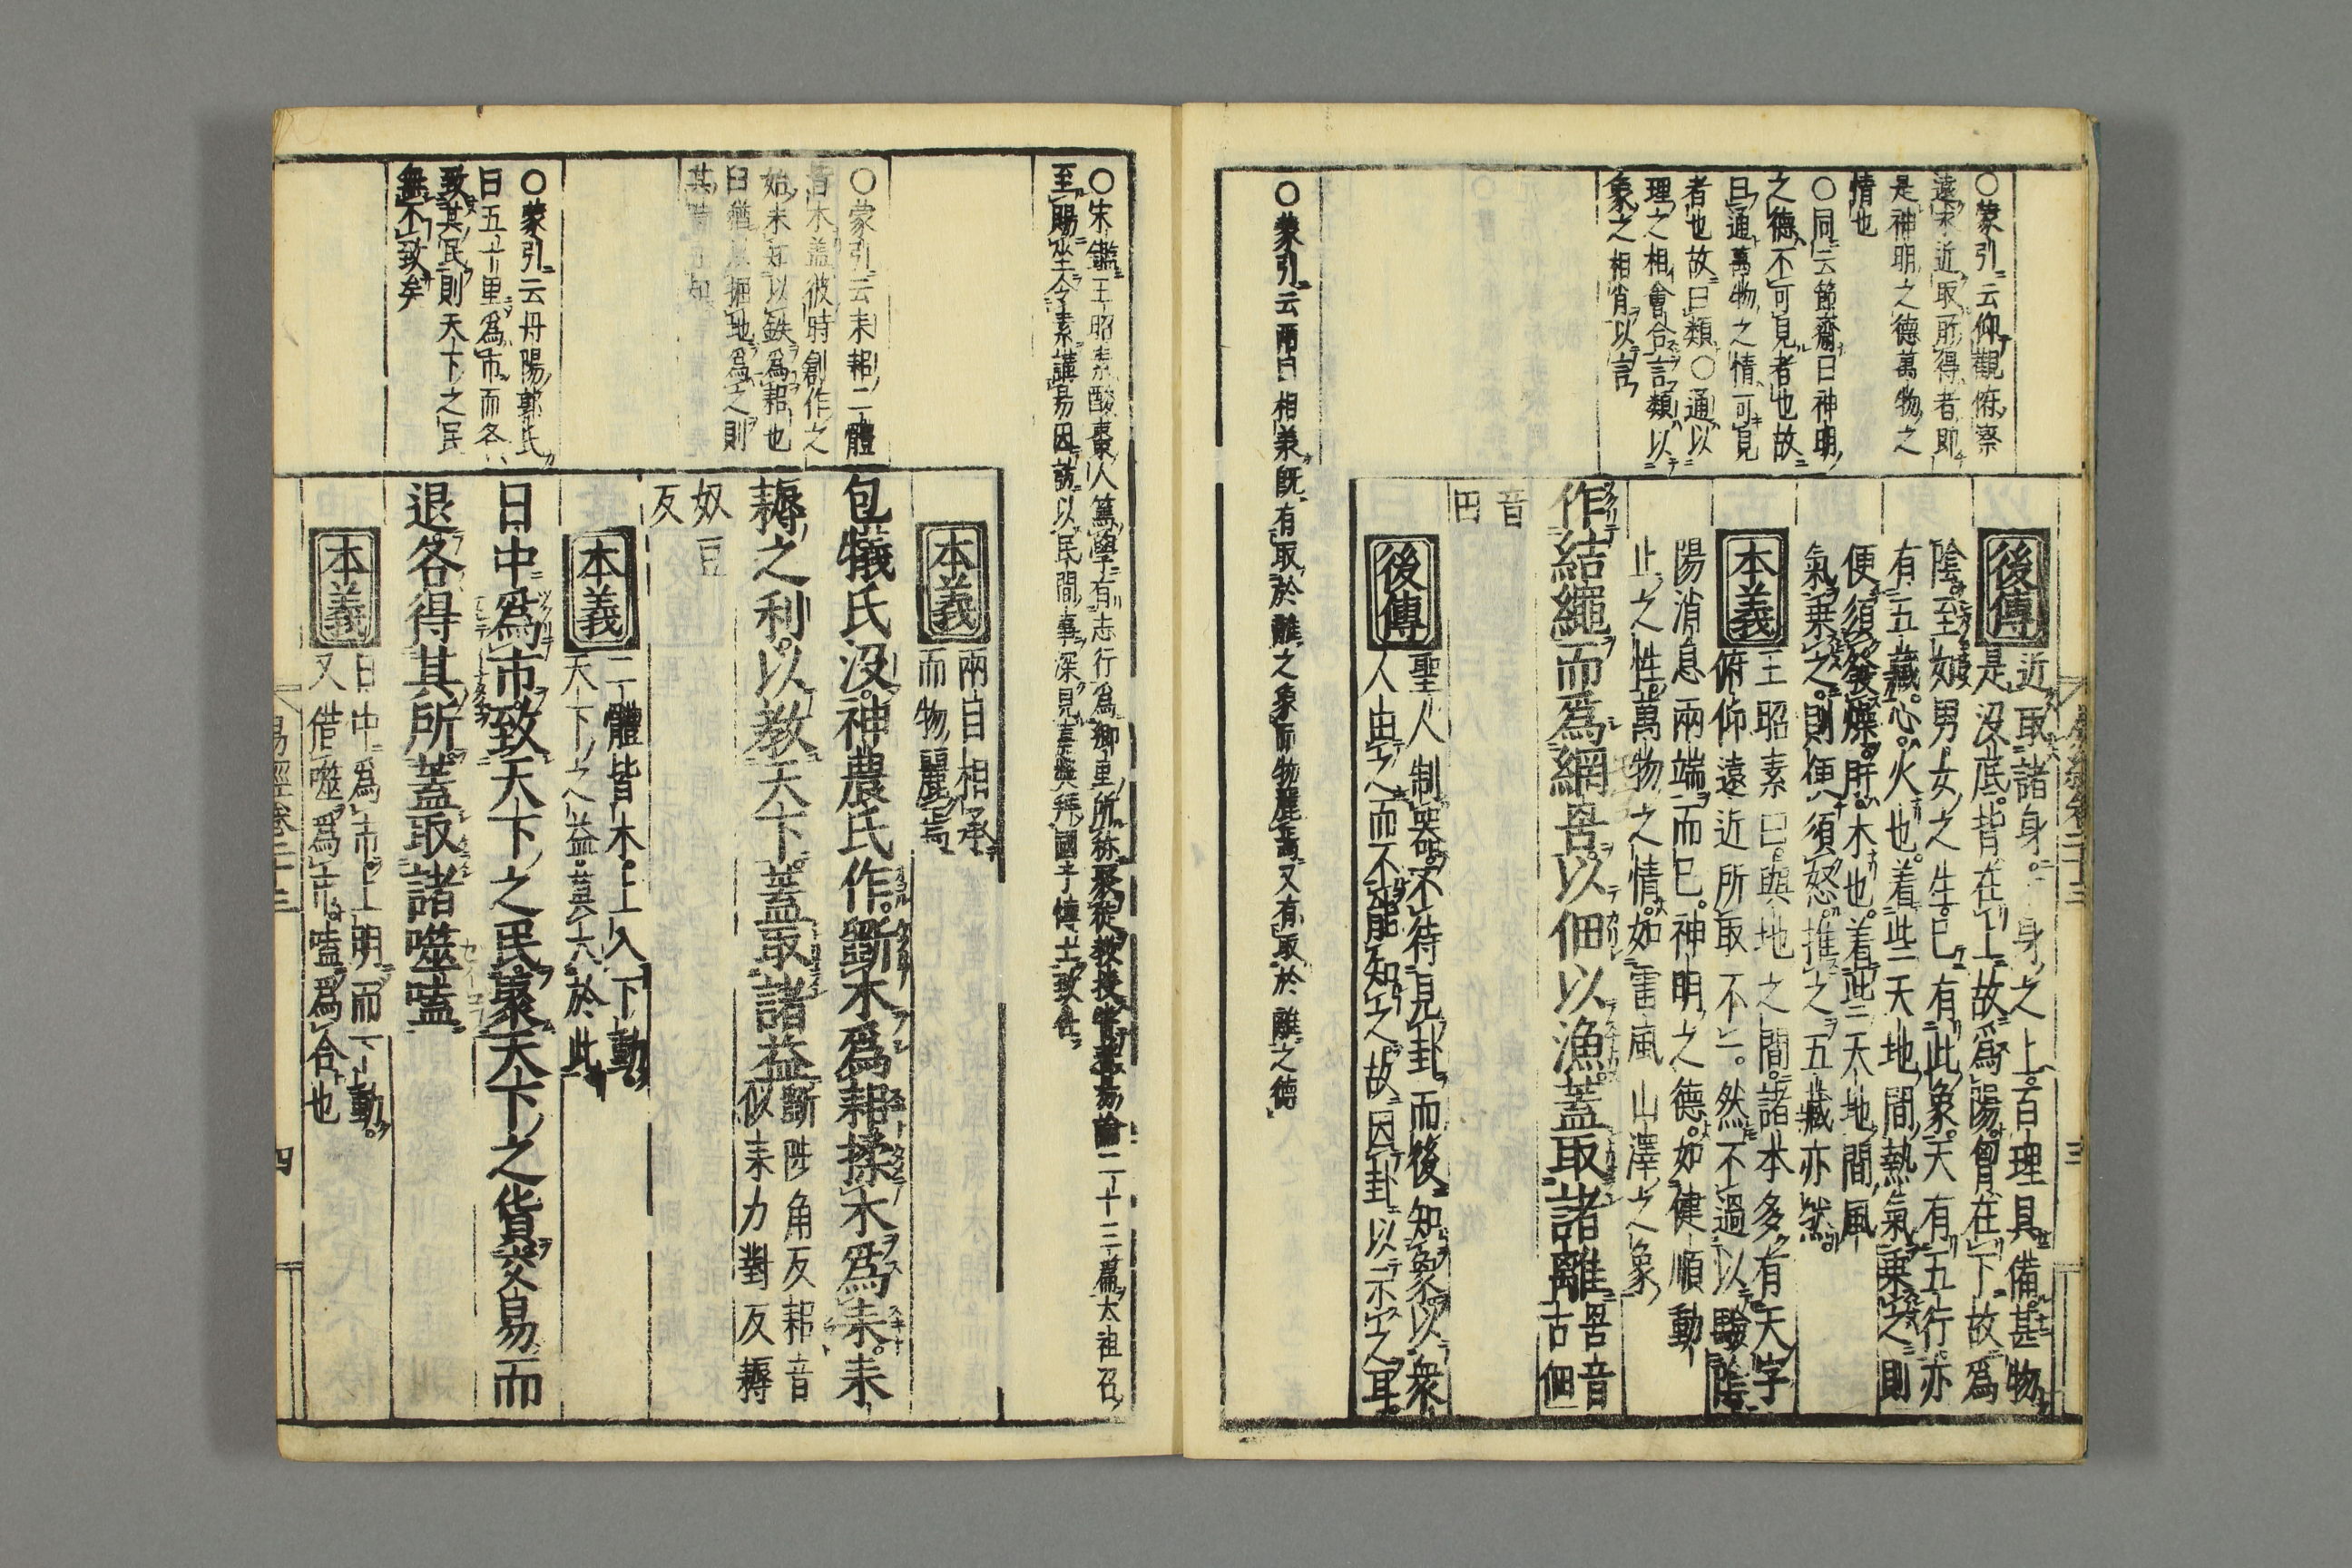 ○蒙引云仰觀俯察
遠求近取所得者即
是神明之德萬物之
情也
○同云節齋曰神明
之德不可見者也故
曰通萬物之情可見
者也故曰類○通以
理之相會合言類以
象之相肖以言
後傳
近取諸身一身之上百理具備甚物
是沒底背在上故爲陽胷在下故爲
陰至如男女之生已有此象天有五行亦
有五藏心火也着些天地間熱氣乗之則
便須發燥肝木也着些天地間風
氣乗之則便須怒推之五藏亦然
本義
王昭素曰與地之間諸本多有天字
俯仰遠近所取不一然不過以驗陰
陽消息兩端而已神明之德如健順動
止之性萬物之情如雷風山澤之象
作結繩而爲網罟以佃以漁蓋取諸離罟音
古佃
音
田
後傳
聖人制器不待見卦而後知象以衆
人由之而不能知之故因卦以示之耳
○蒙引云兩目相承既有取於離之象而物麗焉又有取於離之德
○宋鑑王昭素酸棗人篤學有志行爲鄉里所称聚徒教授嘗著易論二十三篇太祖召
至賜坐令素講易因訪以民間事深見嘉獎拜國子博士致仕
○蒙引云耒耜二體
皆木盖彼時創作之
始未知以鉄爲耜也
曰猶掘地爲之則
本義
兩目相承
而物麗焉
包犧氏没神農氏作斵木爲耜揉木爲耒耒
耨之利以教天下蓋取諸益斵陟角反耜音
似耒力對反耨
奴豆
反
本義
二體皆木上入下動
天下之益莫大於此
○蒙引云丹陽郭氏
曰五十里爲市而各
致其民則天下之民
無不致矣
日中爲市致天下之民聚天下之貨交易而
退各得其所蓋取諸噬嗑
本義
日中爲市上明而下動
又借噬爲市嗑爲合也
易經卷二十三
四